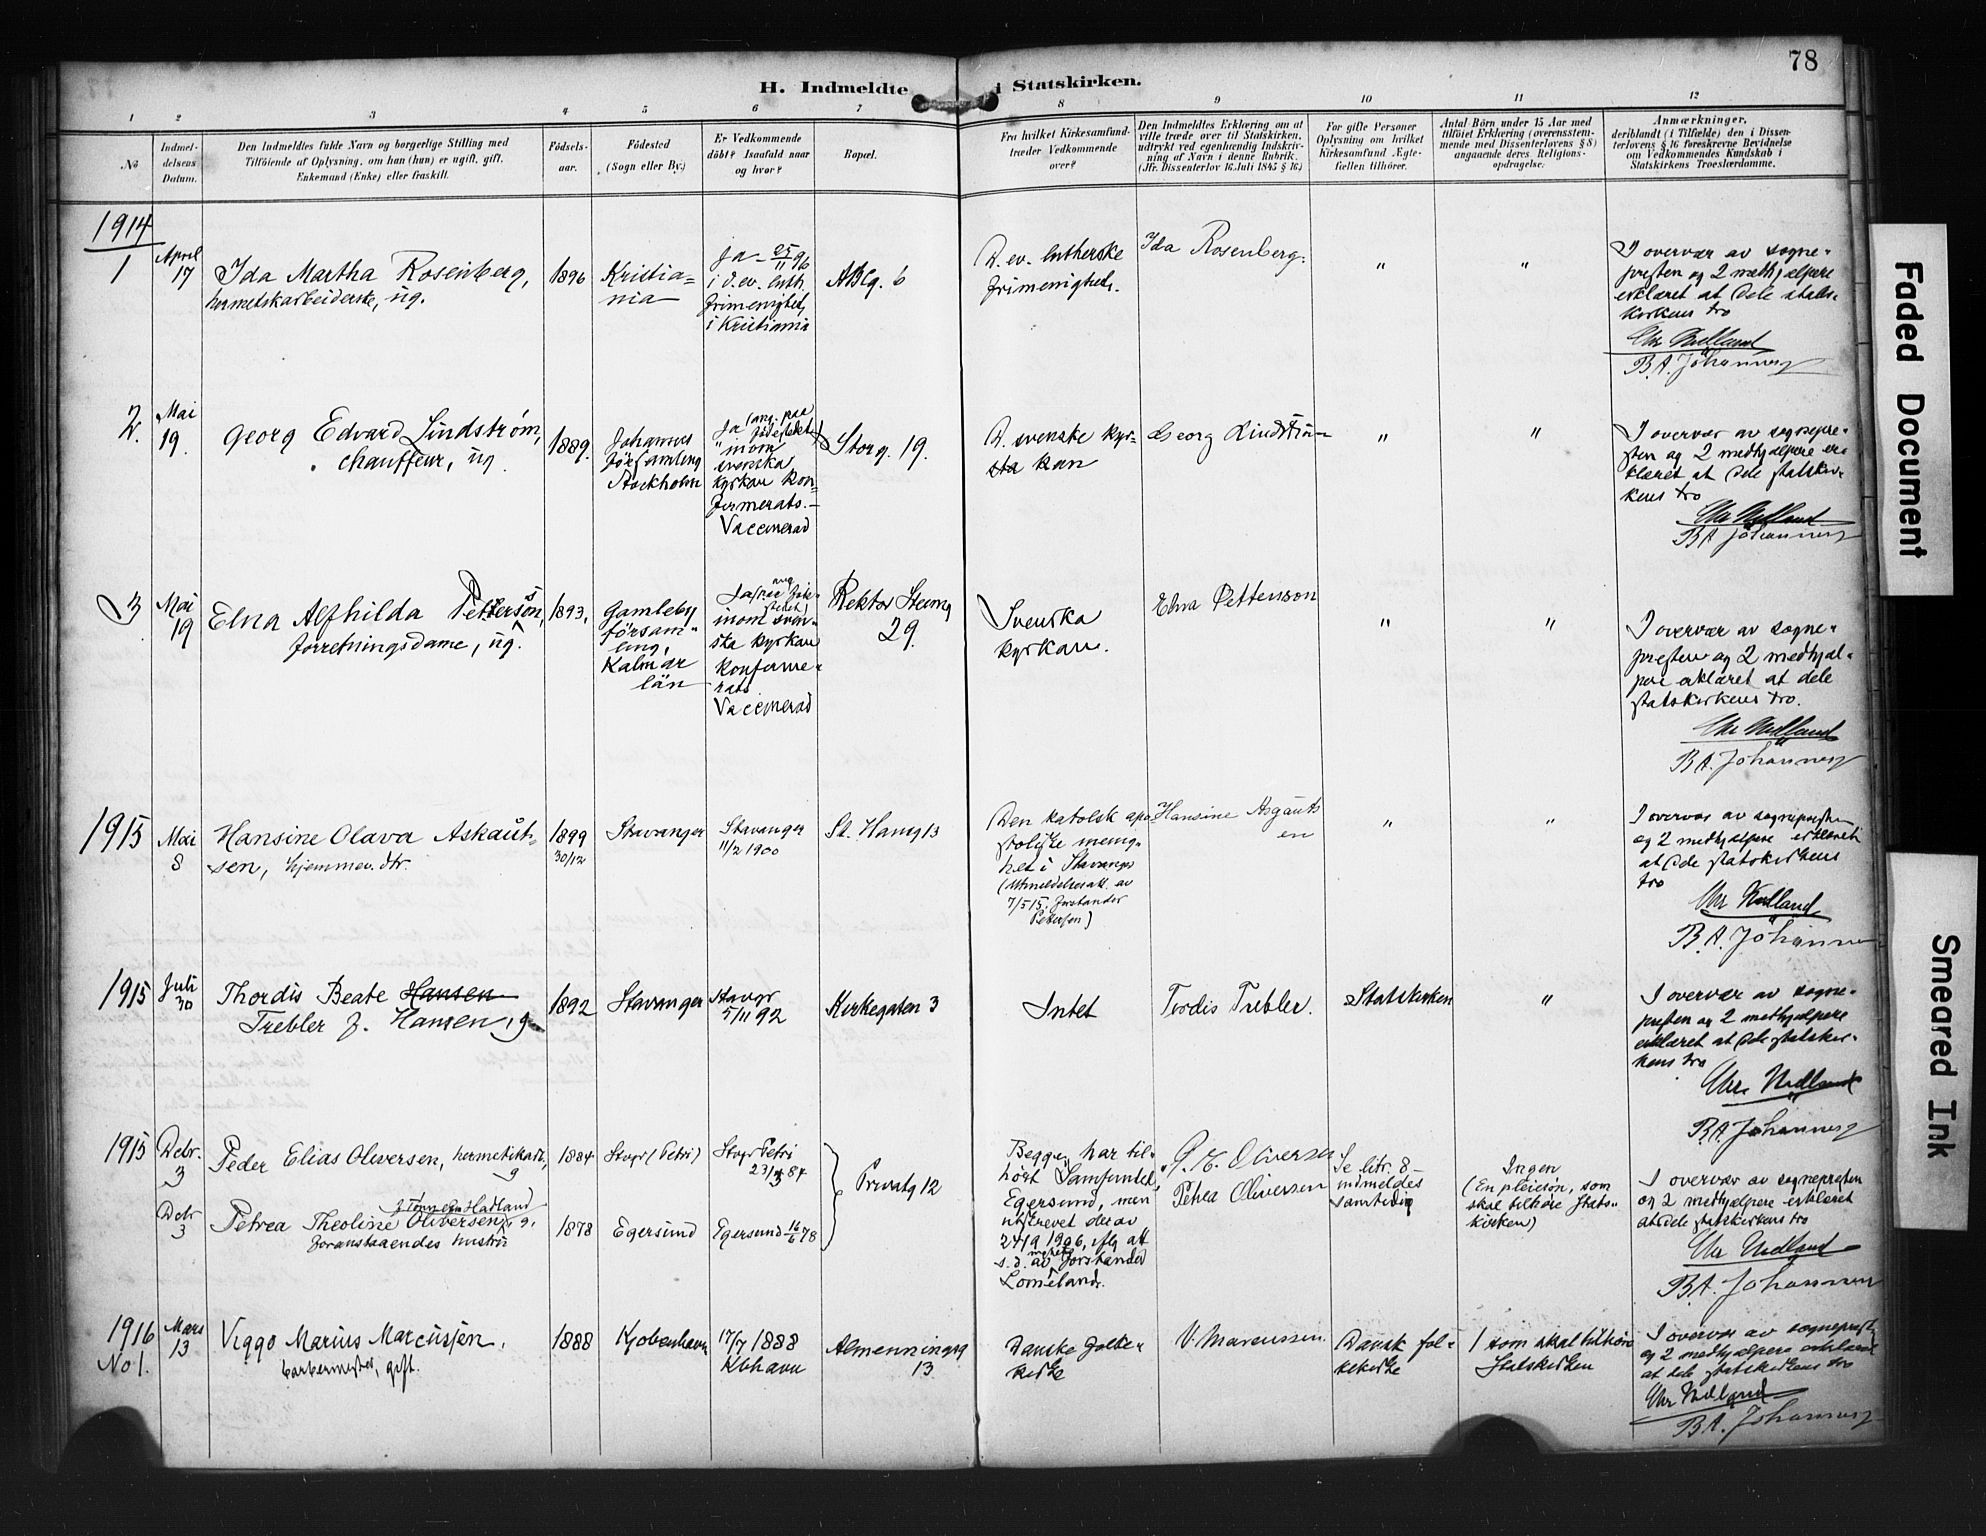 78
H. Indmeldte i Statskirken.
1 2 3 4 5 6 7 8 9 10 11 12
No
Indmel-
delsens
Datum.
Den Indmeldtes fulde Navn og borgerlige Stilling med
Tilföiende af Oplysning, om han (hun) er ugift, gift,
Enkemand (Enke) eller fraskilt.
Födsels-
aar.
Födested
(Sogn eller By.)
Er Vedkommende
döbt? Isaafald naar
og hvor?
Bopæl.
Fra hvilket Kirkesamfund
træder Vedkommende
over?
Den Indmeldtes Erklæring om at
ville træde over til Statskirken,
udtrykt ved egenhændig Indskriv-
ning af Navn i denne Rubrik.
(Jfr. Dissenterlov 16 Juli 1845 § 16.)
For gifte Personer
Oplysning om hvilket
Kirkesamfund Ægte-
fællen tilhörer.
Antal Börn under 15 Aar med
tilföiet Erklæring (overensstem-
mende med Dissenterlovens § 8)
angaaende deres Religions-
opdragelse.
Anmærkninger,
deriblandt (i Tilfælde) den i Dissen-
terlovens § 16 foreskrevne Bevidnelse
om Vedkommendes Kundskab i
Statskirkens Troeslærdomme.
1914
1
April
17
Ida Martha Rosenberg,
hermetikarbeiderske, ug.
1896
Kristia=
nia
Ja - 25/11 96
i d. ev. luth.
frimenighed,
i Kristiania
6
D. ev. lutherske
frimenighed.
Ida Rosenberg.
"
"
I overvær av sogne-
presten og 2 medhjælpere
erklæret at dele stats-
kirkens tro
B.A. Johannes
2.
Mai
19.
Georg Edvard Lindstrøm,
chauffeur, ug.
1889.
Johannes
församling
Stockholm
Ja (ang. paa
inom
svenska
kyrkan kon=
firmerats. -
Vaccinerad
Storg. 19.
D. svenske kyr-
kan
Georg Lindström
"
"
I overvær av sognepre-
sten og 2 medhjælpere er-
klæret at dele statskir-
kens tro
B.A. Johannes
3
Mai
19
Elna Alfhilda Petterson,
forretningsdame, ug.
1893.
Gamleby
försam-
ling,
Kalmar
län
inom sven-
ska kyrkan
konfirme-
rats
Vaccinerad
29.
Svenska
kyrkan.
Elna Pettersson
"
"
I overvær av sogne-
presten og 2 medhjæl-
pere erklæret at dele
statskirkens tro.
B.A. Johannes
1915
Mai
8
Hansine Olava Askaut-
sen, hjemmev. dtr.
1899
30/12
Stavanger
Stavanger
11/2 1900
St. Hansg 13
Den katolsk apo
stoliske menig-
het i Stavanger
(Utmeldelsesatt. av
7/5 15. forstander
Petersen)
Hansine Asgauts
en
"
"
I overvær av sognepresten
og 2 medhjælpere erklæret
at dele statskirkens
tro
B.A. Johannes
1915
Juli
30
Thordis Beate Hansen
Trebler f. Hansen, g.
1892
Stavanger
Stavgr
5/11 92
Kirkegaten 3
Intet
Tordis Trebler.
Statskirken
"
I overvær av sogne-
presten og 2 medhjælpere
erklæret at dele statskir-
kens tro
B.A. Johannes
1915
Debr.
3
Peder Elias Oliversen, hermetikarb.,
g
1884
Stvgr (Petri)
Stvgr Petri
23/3 84
Privatg 12
Begge har til-
hört Samfundet,
Egersund, men
utskrevet der av
24/9 1906, iflg. att.
s. d. av forstander
Lomeland.
P. E. Oliversen
Se litr. 8 -
indmeldes
samtidig
Ingen
(En pleiesön, som
skal tilhöre Stats-
kirken)
I overvær av sognepresten
og 2 medhjælpere erklæret
at dele statskirkens tro
B.A. Johannes
Debr
3
Petrea Theoline Oliversen, g.
foranstaaendes hustru
1878
Egersund
Egersund 16/6 78
Petrea Oliversen
1916
No 1.
Mars
13
Viggo Marius Marcussen,
barbermester, gift.
1888
Kjøbenhavn
17/7 1888
Kbhavn
Almenningsg
13
Danske folke-
kirke
V. Marcussen.
Dansk fol-
kekirke
1 som skal tilhöre
Statskirken
I overvær av sognepresten
og 2 medhjælpere erklæret
at dele statskirkens tro
B.A. Johannes
Faded Document
Smeared Ink